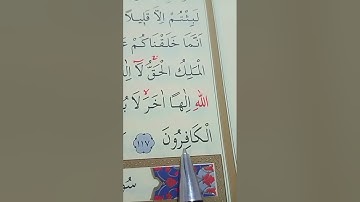 لَبِثْتُمْ اِلَّا قَلِيلًا
اَنَّمَا خَلَقْنَاكُمْ
الْمَلِكُ الْحَقُّ لَٓا
اللّٰهِ اِلٰهًا اٰخَرَ لَا
الْكَافِرُونَ ﴿١١٧﴾